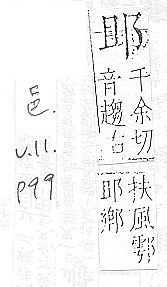 䢸
千余切
音趨右
扶風鄠
䢸鄉
邑.
v.11.
p99